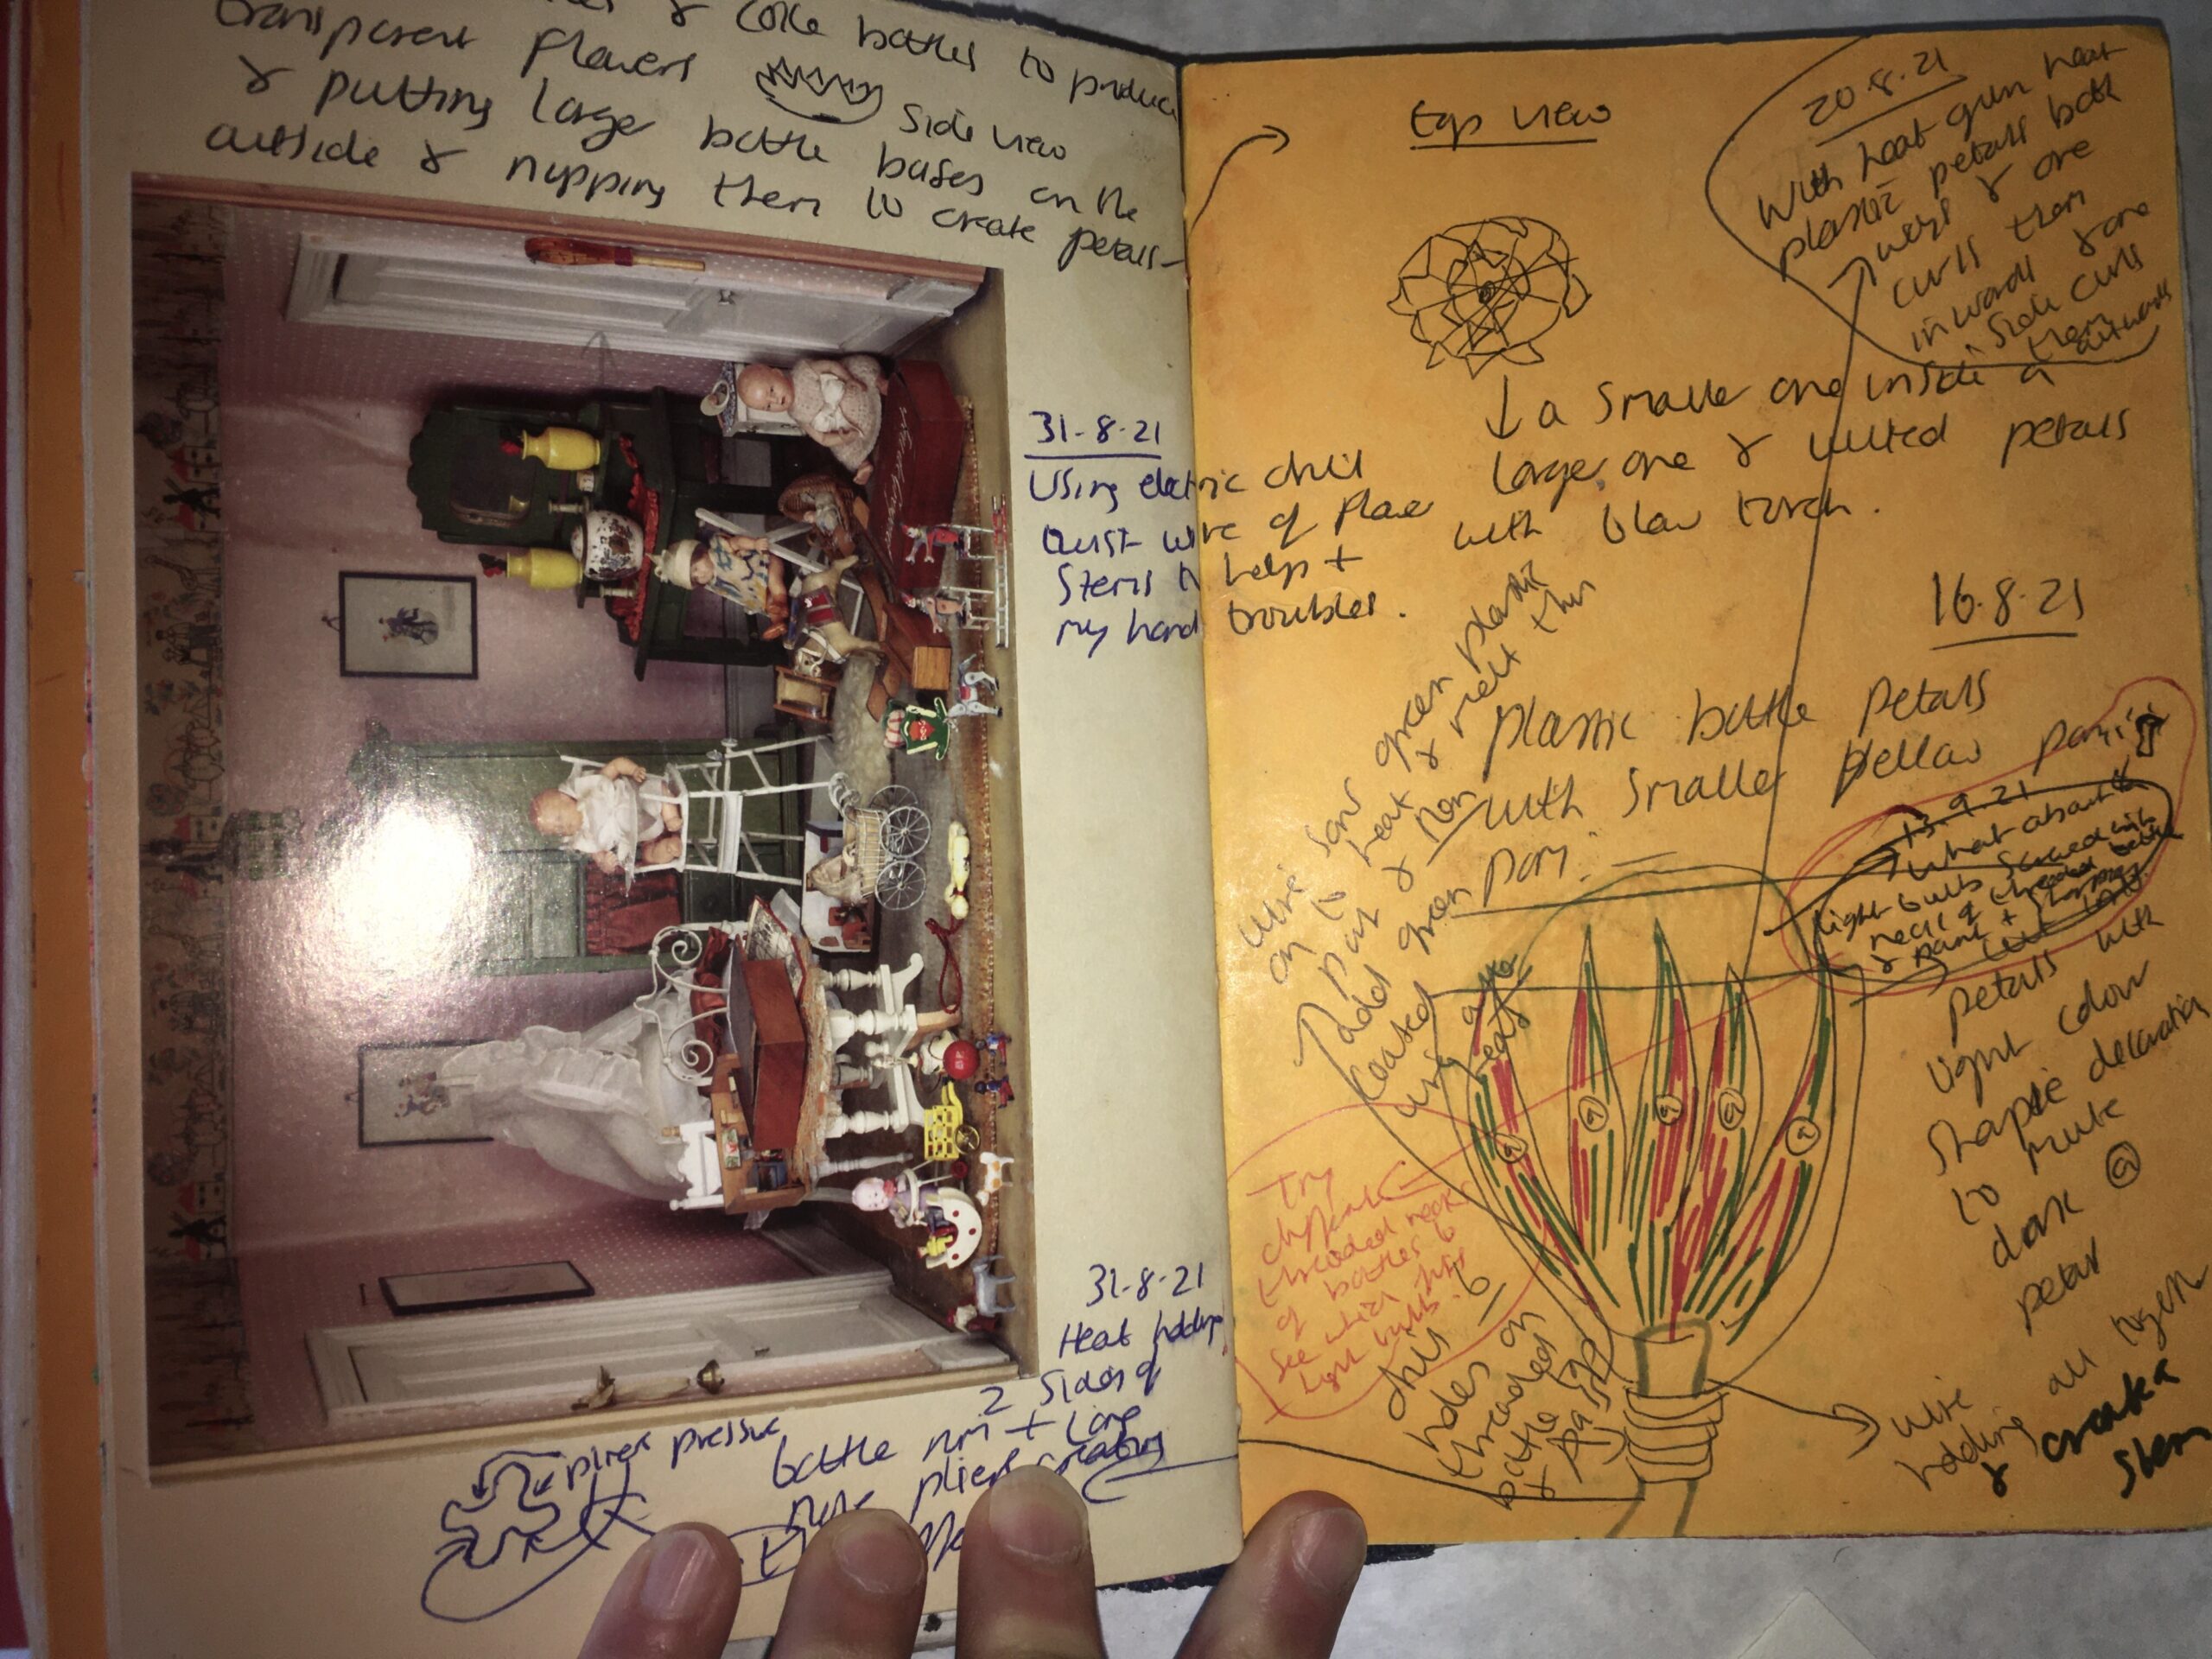 & coke bottles to produce
transparent flowers
side view
& putting large bottle bases on the
outside & nipping them to create petals
31-8-21
Using electric drill
twist wire of flower
stems to help +
my hand troubles.
31-8-21
Heat holding
2 sides of
bottle rim + long
nose pliers creating
plier pressure
top view
20.8.21
With heat gun heat
plastic petals both
ways & one
curls them
inwards & one
side curls
them outwards
↓ a smaller one inside a
large one & melted petals
with blow torch.
16.8.21
plastic bottle petals
with smaller yellow
pom.
green plastic
on to heat & melt this
add green
coated
wire after
heat
13.9.21
what about
light bulbs screwed into
neck of threaded bottle
& paint +
petals with
light colour
sharpie decoration
to make
dark
petal
@
@
@
@
@
Try
different
threaded necks
of bottles to
see which fits
light bulbs.
drill 6
holes on
threaded
bottle
& pass
wire
holding all together
& create
stem